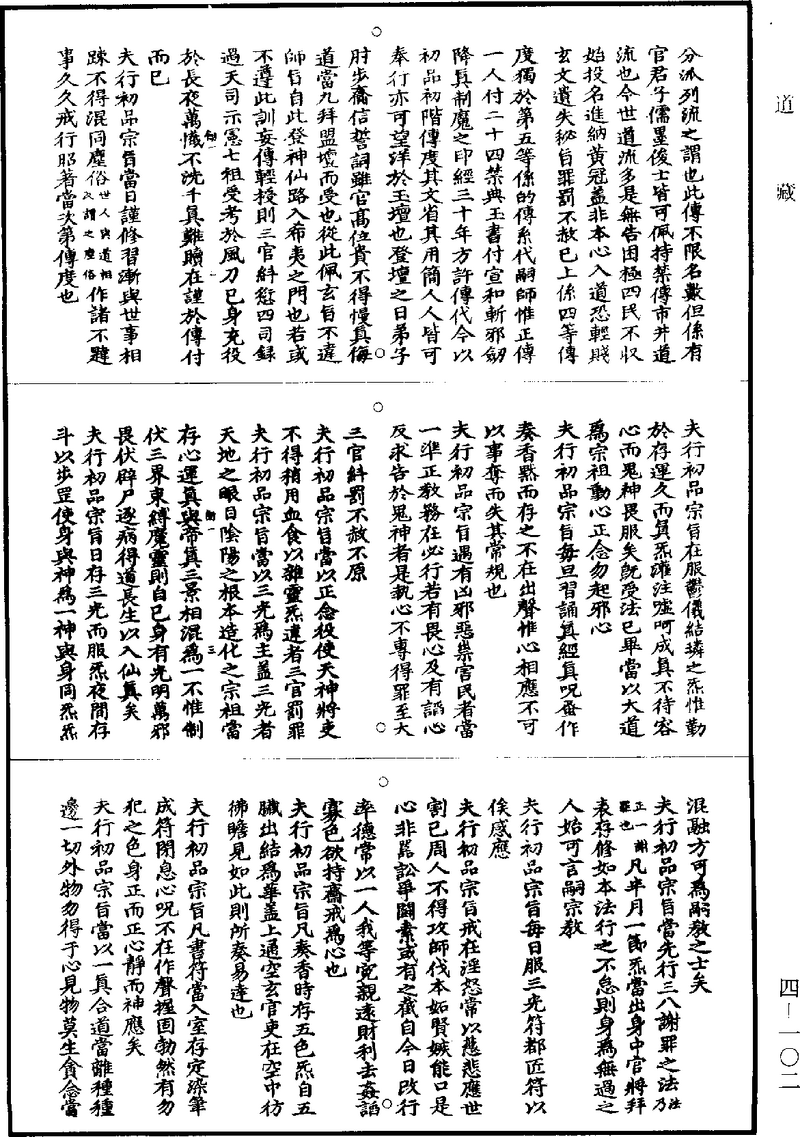 道藏
四—一〇二
分派列流之謂也此傳不限名數但係有
官君子儒墨俊士皆可佩持禁傳市井道
流也今世道流多是無告困極四民不収
始投名進納黃冠蓋非本心入道恐輕賤
玄文遺失秘旨罪罰不赦已上係四等傳
度獨於第五等係的傳系代嗣師惟正傳
一人付二十四禁典玉書付宣和斬邪劒
降真制魔之印經三十年方許傳代今以
初品初階傳度其文省其用簡人人皆可
奉行亦可望洋於玉壇也登壇之日弟子
肘步齋信誓詞雖官高位貴不得慢真侮
道當九拜盟壇而受也從此佩玄旨不違
師旨自此登神仙路入希夷之門也若或
不遵此訓妄傳輕授則三官糾愆四司録
過天司示憲七祖受考於風刀已身充役
於長夜萬懺不洗千真難贖在謹於傳付
而已
夫行初品宗旨當日謹修習漸與世事相
踈不得混同塵俗世人與道相反謂之塵俗作諸不韙
事久久戒行昭著當次第傳度也
夫行初品宗旨在服鬱儀結璘之炁惟勤
於存運久而真炁灌注噓呵成真不待容
心而鬼神畏服矣旣受法已畢當以大道
爲宗祖動心正念勿起邪心
夫行初品宗旨每旦習誦真經真呪蚤作
奏香黙而存之不在出聲惟心相應不可
以事奪而失其常規也
夫行初品宗旨遇有凶邪惡祟害民者當
一準正教務在必行若有畏心及有謟心
反求告於鬼神者是執心不專得罪至大
三官糾罰不赦不原
夫行初品宗旨當以正念役使天神將吏
不得稍用血食以雜靈炁違者三官罰罪
夫行初品宗旨當以三光爲主蓋三光者
天地之眼目陰陽之根本造化之宗祖當
存心運真與帝真三景相混爲一不惟制
伏三界束縛魔靈則自已身有光明萬邪
畏伏辟尸逐病得道長生以入仙真矣
夫行初品宗旨日存三光而服炁夜間存
斗以步罡使身與神爲一神與身同炁炁
混融方可爲嗣教之士矣
夫行初品宗旨當先行三八謝罪之法法乃正一謝罪也凡半月一節炁當出身中官將拜
表存修如本法行之不怠則身爲無過之
人始可言嗣宗教
夫行初品宗旨每日服三光符都匠符以
俟感應
夫行初品宗旨戒在淫怒常以慈悲應世
割已周人不得攻師伐本妬賢嫉能口是
心非嚚訟爭鬪素或有之截自今日改行
率德常以一人我等寃親遠財利去姦謟
寡色欲持齋戒爲心也
夫行初品宗旨凡奏香時存五色炁自五
臟出結爲華蓋上通空玄官吏在空中彷
彿瞻見如此則所奏易達也
夫行初品宗旨凡書符當入室存定滌筆
成符閉息心呪不在作聲握固勃然有勿
犯之色身正而正心靜而神應矣
夫行初品宗旨當以一真合道當離種種
邊一切外物勿得于心見物莫生貪念當